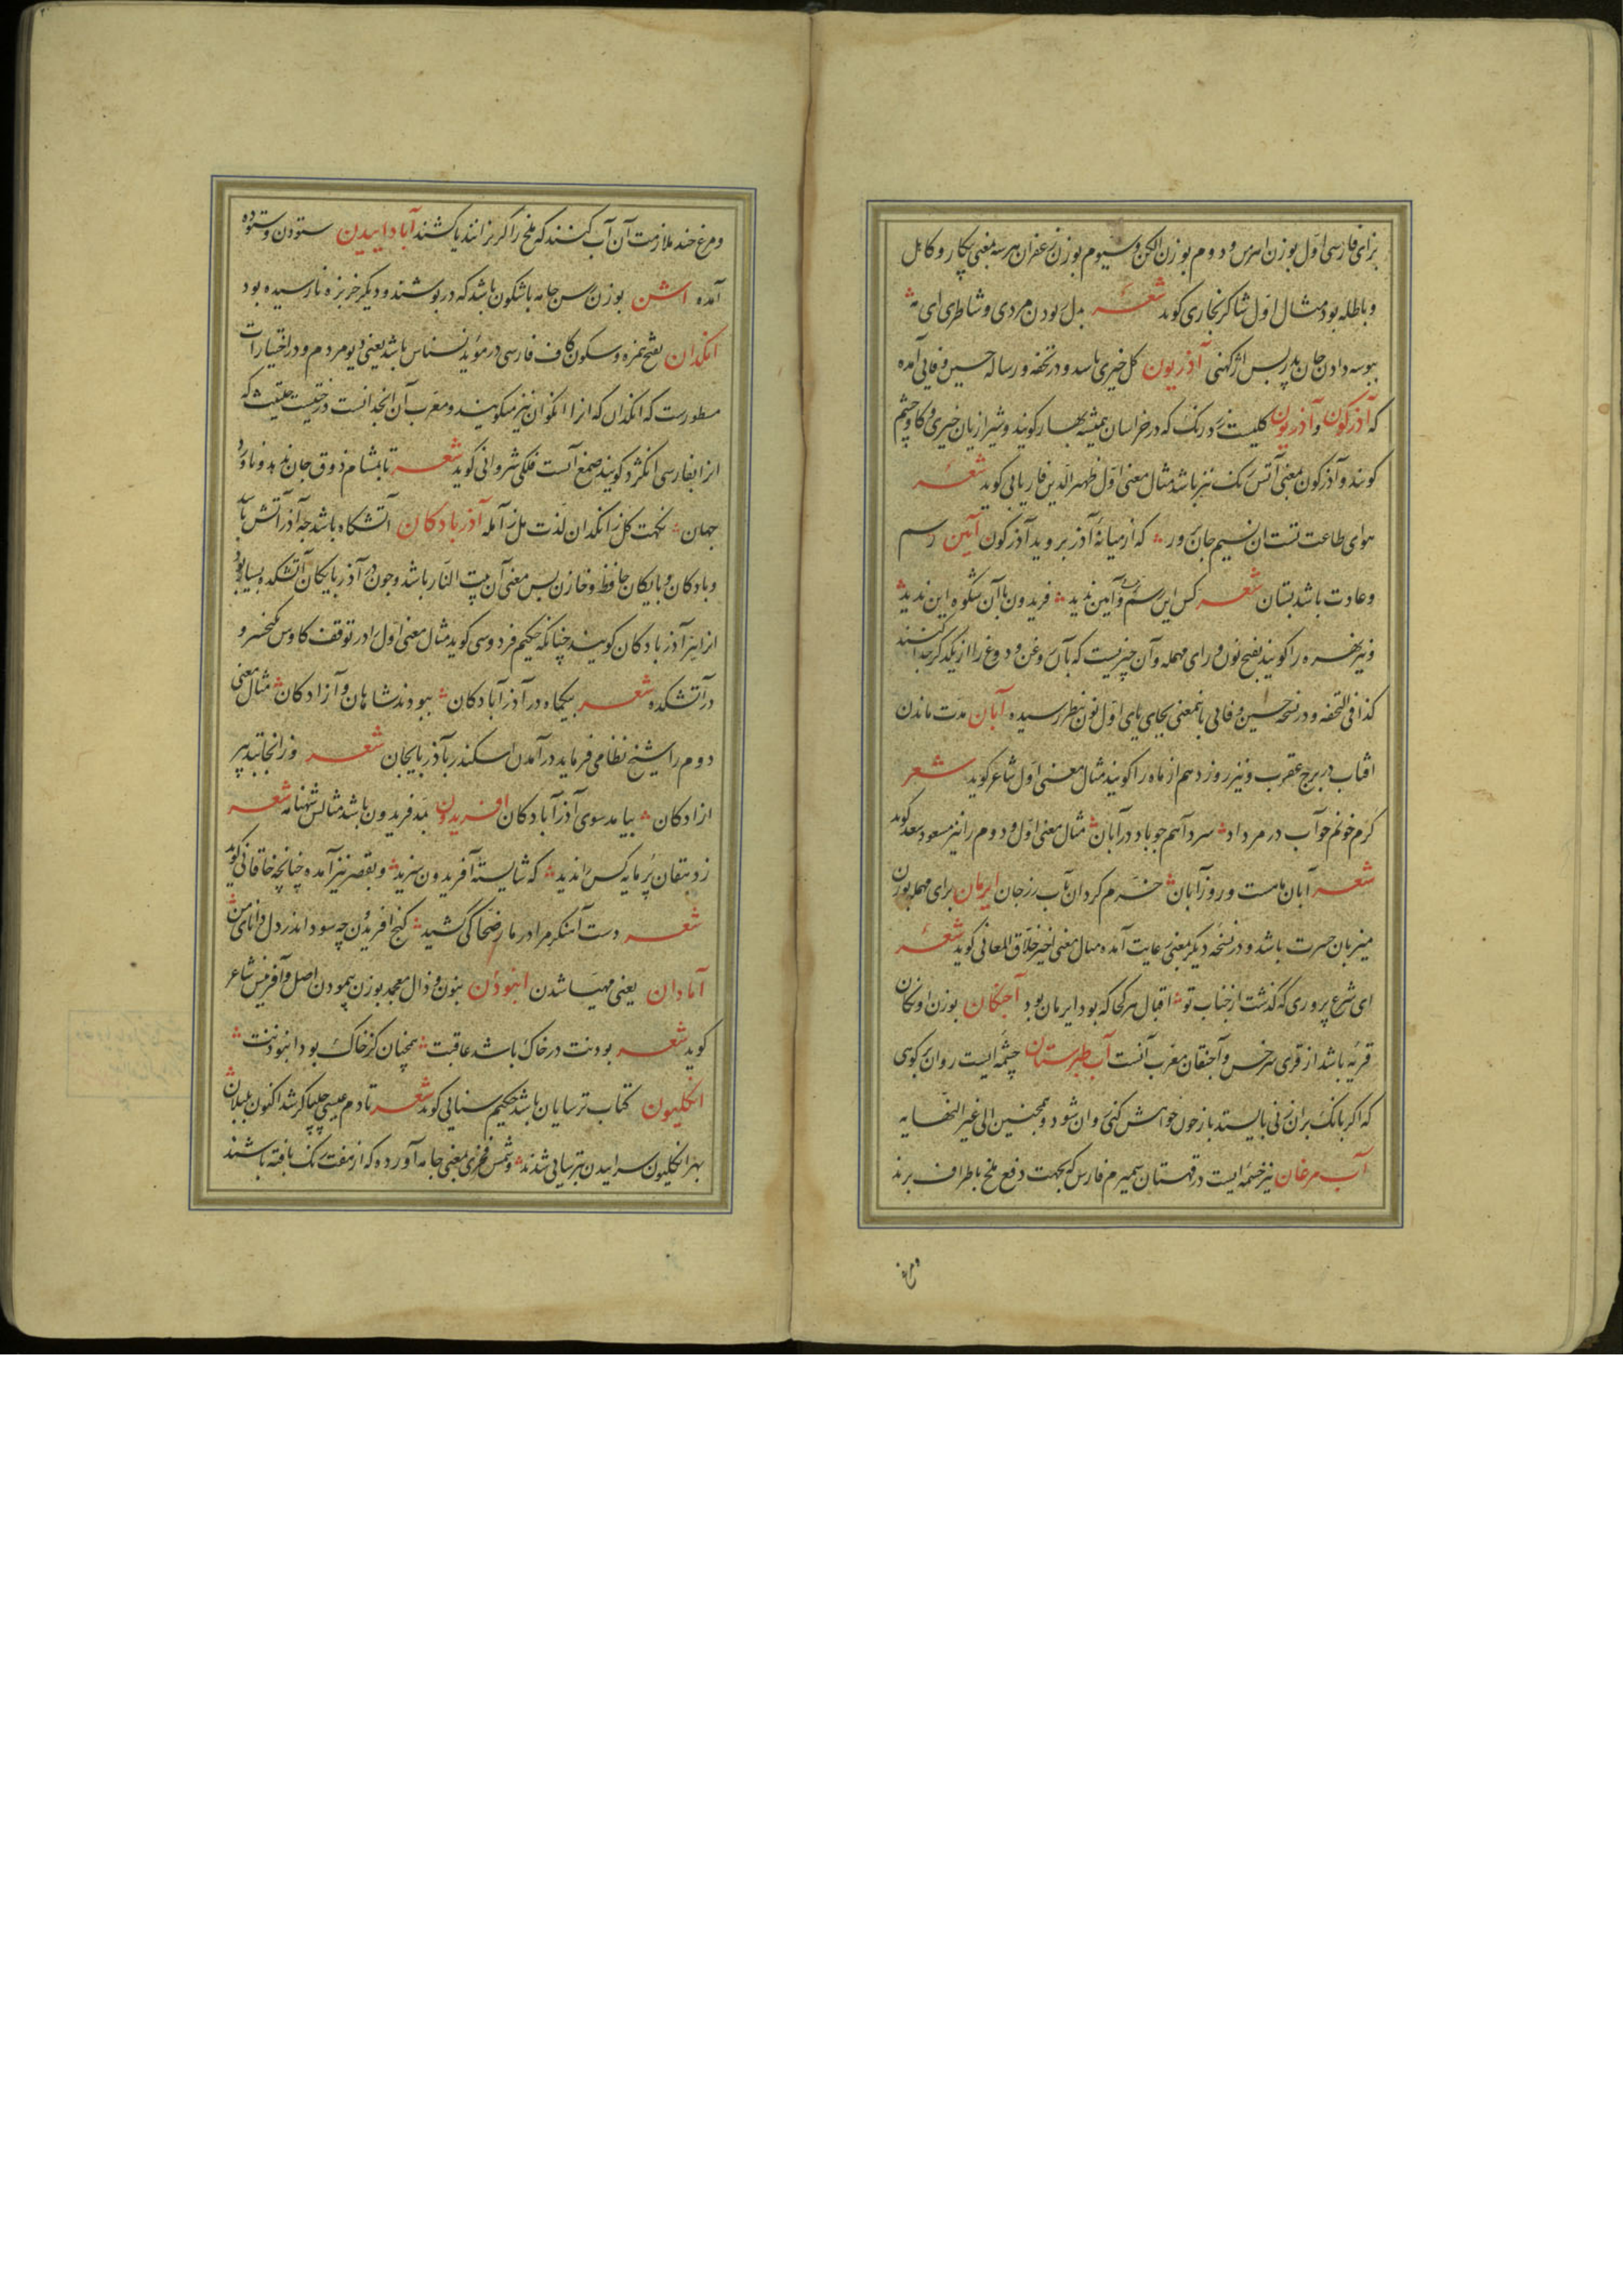 بزای فارسی اول بوزن اهرمن و دوم بوزن الکن و سیوم بوزن زعفران هر سه بمعنی بیکار و کاهل
و باطله بود مثال اول شاکر بخاری کوید شعر بل بودن مردی و شاطری ای نه
ببوسه دادن جان پدر بس اژکهنی آذریون کل خیری باشد و در تحفه و رساله حسین وفایی آمده
که آذرکون و آذریون کلیست زرد رنک که در خراسان همیشه بهار کویند و شیرازیان خیری و کاوچشم
کویند و آذرکون بمعنی آتش رنک نیز باشد مثال معنی اول ظهیر الدین فاریابی کوید شعر
هوای طاعت تست ان نسیم جان پرور که از میانۀ آذر بروید آذرکون آیین رسم
و عادت باشد بستان شعر کس این رسم و آیین ندید فریدون با آن شکوه این ندید
و نیز نهره را کویند بفتح نون و رای مهمله و آن چیزیست که بآن روغن و دوغ را از یکدکر جدا کنند
کذا فی التحفه و در نسخه حسین وفایی باینمعنی بجای یای اول نون بنظر رسیده آبان مدت ماندن
افتاب در برج عقرب و نیز روز دهم از ماه را کویند مثال معنی اول شاعر کوید شعر
کرم خونم خواب در مرداد سرد آهم چو باد در آبان مثال معنی اول و دوم را نیز مسعود سعد کوید
شعر آبان ماهست و روز آبان خرم کردان بآب رز جان ایرمان برای مهمله بوزن
میزبان حسرت باشد و در نسخه دیکر بمعنی رعایت آمده مثال معنی اخیر خلاق المعانی کوید شعر
ای شرع پروری که کذشت از جناب تو اقبال هر کجا که بود ایرمان بود آجنکان بوزن اونکان
قریه باشد از قری سرخس و آجنقان معرب آنست آب طبرستان چشمه ایست روان بر کوهی
که اکر بانک بران زنی بایستد باز چون خواهش کنی روان شود و همچنین الی غیر النهایه
آب مرغان نیز چشمه ایست در قهستان سمیرم فارس که بجهت دفع ملخ باطراف برند
و مرغ
و مرغ چند ملازمت آن آب کنند که ملخ را اکر برانند یا کشند آبادانیدن ستودن و ستوده
آمده اشن بوزن رسن جامه باشکون باشد که در پوشند و دیکر خربزه نارسیده بود
انکدان بفتح همزه و سکون کاف فارسی در موید نسناس باشد یعنی دیو مردم و در اختیارات
مسطورست که انکدان که انرا انکوان نیز میکویند و معرب آن انجدانست درختیست حلتیت که
انرا بفارسی انکژد کویند صمغ آنست فلکی شروانی کوید شعر تا بمشام ذوق جان ندهد و ناورد
جهان نکهت کل ز انکدان لذت مل ز آمله آذربادکان آتشکاه باشد چه آذر آتش باشد
و بادکان و بایکان حافظ و خازن پس معنی آن بیت النار باشد و چون در آذربایکان آتشکده بسیار بود
انرا نیز آذربادکان کویند چنانکه حکیم فردوسی کوید مثال معنی اول را در توقف کاوس و کیخسرو
در آتشکده شعر بیکماه در آذرآبادکان ببودند شاهان و آزادکان مثال معنی
دوم را شیخ نظامی فرماید در آمدن اسکندر بآذربایجان شعر وز انجا بتدبیر
ازادکان بیامد سوی آذرآبادکان افریدون بمد فریدون باشد مثالش شهنامه شعر
ز دهقان پر مایه کس را ندید که شایستۀ آفریدون سزید و بقصر نیز آمده چنانچه خاقانی کوید
شعر دست آهنکر مرا در مار ضحاکی کشید کنج افریدون چه سود اندر دل دانای من
آمادان یعنی مهیا شدن انبوذن بنون و ذال معجمه بوزن پیمودن اصل و آفرینش شاعر
کوید شعر بودنت در خاک باشد عاقبت همچنان کز خاک بود انبوذنت
انکلیون کتاب ترسایان باشد حکیم سنایی کوید شعر تا دم عیسی چلیپا کر شد اکنون بلبلان
بهر انکلیون سراییدن بترسایی شدند و شمس فخری بمعنی جامه آورده که از هفت رنک بافته باشند